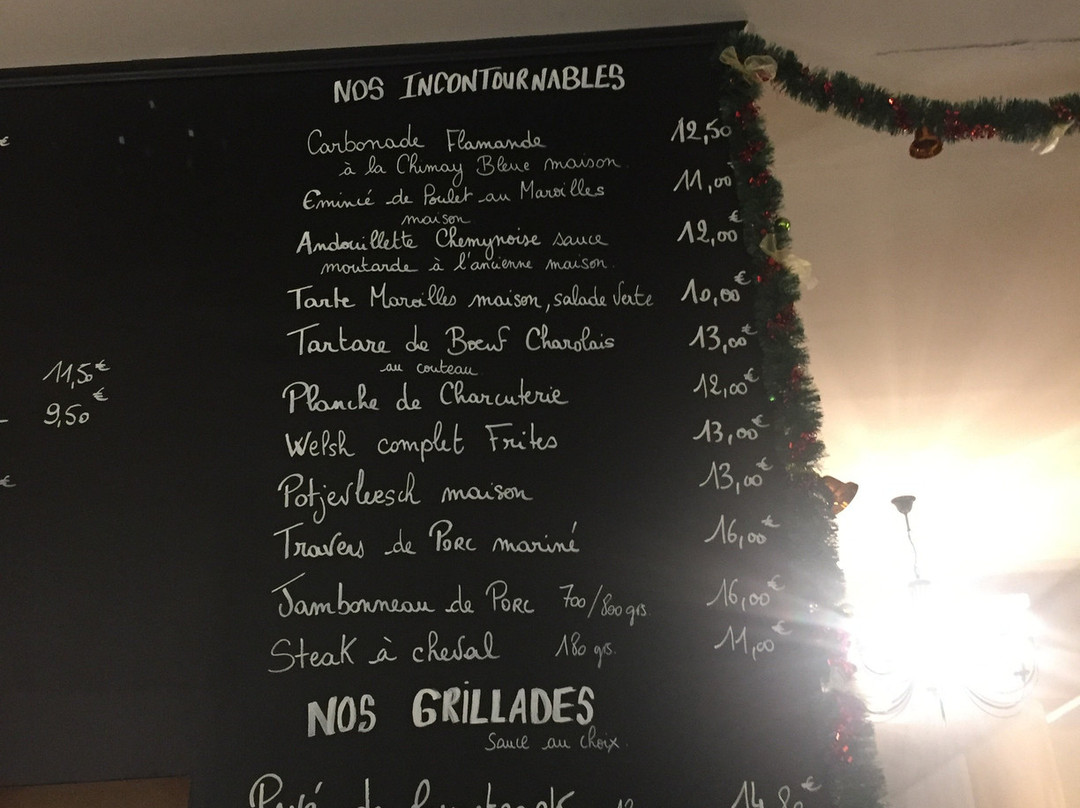 NOS INCONTOURNABLES
Carbonade Flamande 12,50
à la Chimay Bleue maison.
Emincé de Poulet au Maroilles 11,00
maison
Andouillette Chemynoise sauce 12,00€
moutarde à l'ancienne maison.
Tarte Maroilles maison, salade Verte 10,00€
Tartare de Bœuf Charolais 13,00€
au couteau
11,50€
Planche de Charcuterie 12,00€
9,50€
Welsh complet Frites 13,00€
Potjevleesch maison 13,00€
Travers de Porc mariné 16,00€
Jambonneau de Porc 700/800grs 16,00€
Steak à cheval 180 grs. 11,00€
NOS GRILLADES
Sauce au choix.